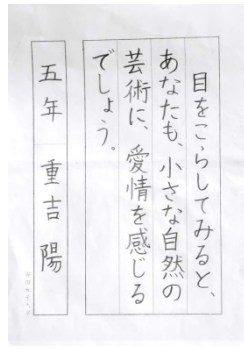 目をこらしてみると、
あなたも、小さな自然の
芸術に、愛情を感じる
でしょう。
五年 重吉陽